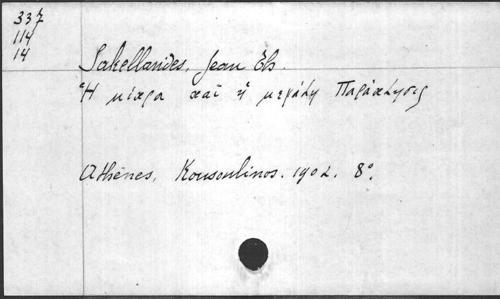 337
114
14
Sakellarides, Jean Th.
Ἡ μίκρα καὶ ἡ μεγάλη Παράκλησις
Athènes, Kousoulinos. 1902. 8°.